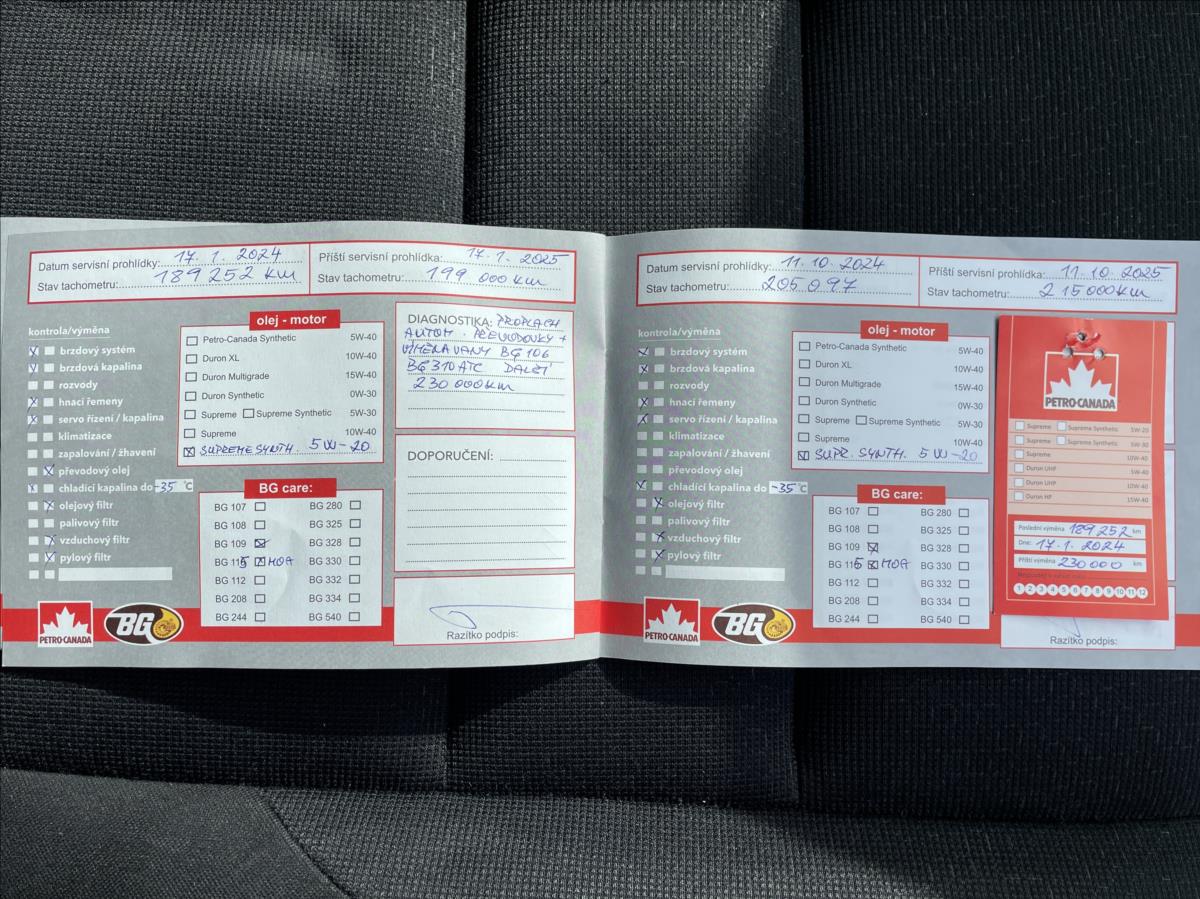 Datum servisní prohlídky: 17. 1. 2024
Stav tachometru: 189 252 km
Příští servisní prohlídka: 17. 1. 2025
Stav tachometru: 199 000 km
kontrola/výměna
brzdový systém
brzdová kapalina
rozvody
hnací řemeny
servo řízení / kapalina
klimatizace
zapalování / žhavení
převodový olej
chladící kapalina do -35 °C
olejový filtr
palivový filtr
vzduchový filtr
pylový filtr
olej - motor
Petro-Canada Synthetic 5W-40
Duron XL 10W-40
Duron Multigrade 15W-40
Duron Synthetic 0W-30
Supreme Supreme Synthetic 5W-30
Supreme 10W-40
SUPREME SYNTH. 5W-20
BG care:
BG 107 BG 280
BG 108 BG 325
BG 109 BG 328
BG 115 MOA BG 330
BG 112 BG 332
BG 208 BG 334
BG 244 BG 540
DIAGNOSTIKA: PROPLACH
AUTOM. PŘEVODOVKY +
VÝMĚNA VANY BG 106
BG 310 ATC DALŠÍ
230 000km
DOPORUČENÍ:
Razítko podpis:
PETRO-CANADA
BG
Datum servisní prohlídky: 11. 10. 2024
Stav tachometru: 205 097
Příští servisní prohlídka: 11. 10. 2025
Stav tachometru: 215000km
kontrola/výměna
brzdový systém
brzdová kapalina
rozvody
hnací řemeny
servo řízení / kapalina
klimatizace
zapalování / žhavení
převodový olej
chladící kapalina do -35 °C
olejový filtr
palivový filtr
vzduchový filtr
pylový filtr
olej - motor
Petro-Canada Synthetic 5W-40
Duron XL 10W-40
Duron Multigrade 15W-40
Duron Synthetic 0W-30
Supreme Supreme Synthetic 5W-30
Supreme 10W-40
SUPR. SYNTH. 5W-20
BG care:
BG 107 BG 280
BG 108 BG 325
BG 109 BG 328
BG 115 MOA BG 330
BG 112 BG 332
BG 208 BG 334
BG 244 BG 540
PETRO-CANADA
BG
PETRO-CANADA
Supreme Supreme Synthetic 5W-20
Supreme Supreme Synthetic 5W-30
Supreme 10W-40
Duron UHP 5W-40
Duron UHP 10W-40
Duron HP 15W-40
Poslední výměna 189252 km
Dne: 17. 1. 2024
Příští výměna 230000 km
1 2 3 4 5 6 7 8 9 10 11 12
Razítko podpis: